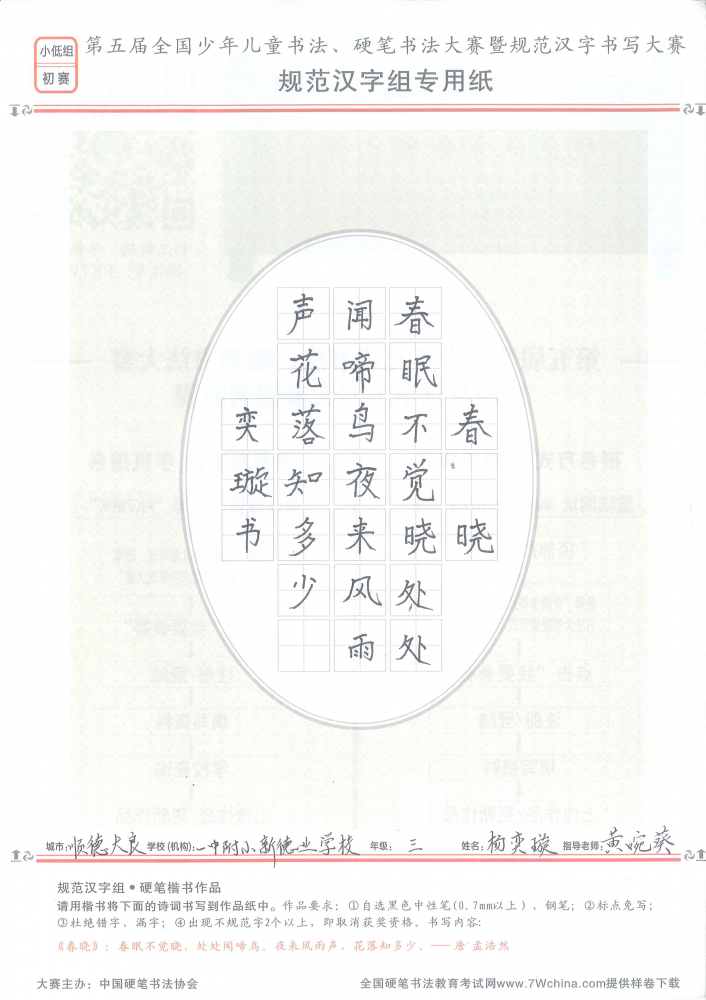 小低组
初赛
第五届全国少年儿童书法、硬笔书法大赛暨规范汉字书写大赛
规范汉字组专用纸
春晓
春眠不觉晓处处
闻啼鸟夜来风雨
声花落知多少
奕璇书
城市:顺德大良 学校(机构):一中附小新德业学校 年级:三 姓名:杨奕璇 指导老师:黄婉葵
规范汉字组•硬笔楷书作品
请用楷书将下面的诗词书写到作品纸中。作品要求:①自选黑色中性笔(0.7mm以上)、钢笔;②标点免写;
③杜绝错字、漏字;④出现不规范字2个以上,即取消获奖资格。书写内容:
《春晓》:春眠不觉晓,处处闻啼鸟。夜来风雨声,花落知多少。——唐·孟浩然
大赛主办:中国硬笔书法协会
全国硬笔书法教育考试网www.7Wchina.com提供样卷下载